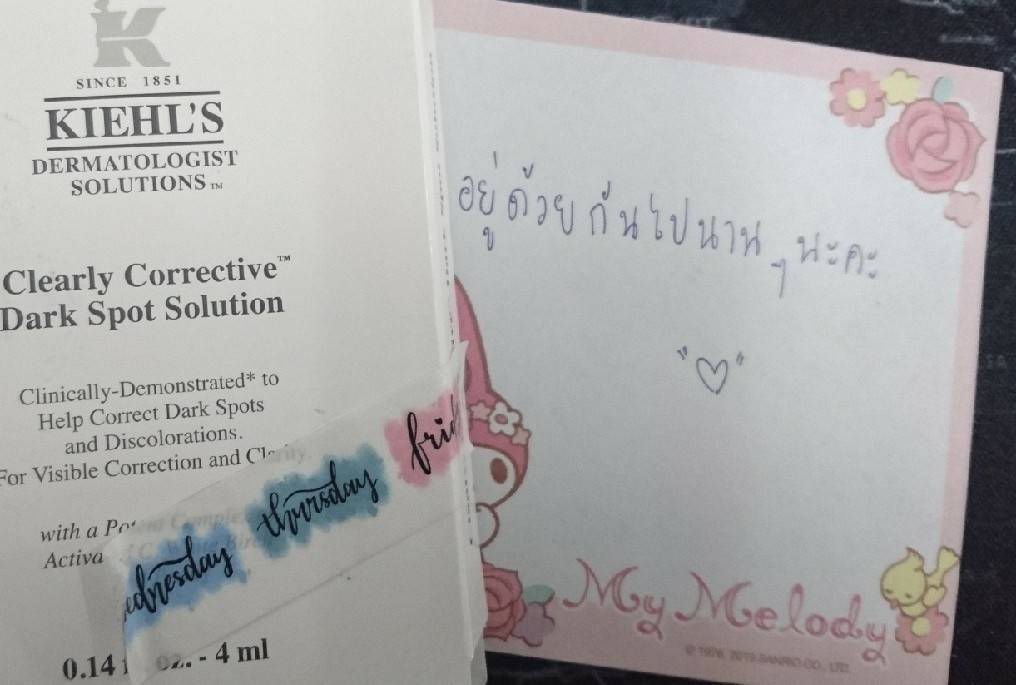 K
SINCE 1851
KIEHL'S
DERMATOLOGIST
SOLUTIONS™
Clearly Corrective™
Dark Spot Solution
Clinically-Demonstrated* to
Help Correct Dark Spots
and Discolorations.
For Visible Correction and Clarity.
with a Potent Complex
Activa
wednesday thursday frid
0.14 oz. - 4 ml
อยู่ด้วยกันไปนานๆนะคะ
"♡"
My Melody
© 1976, 2019 SANRIO CO., LTD.